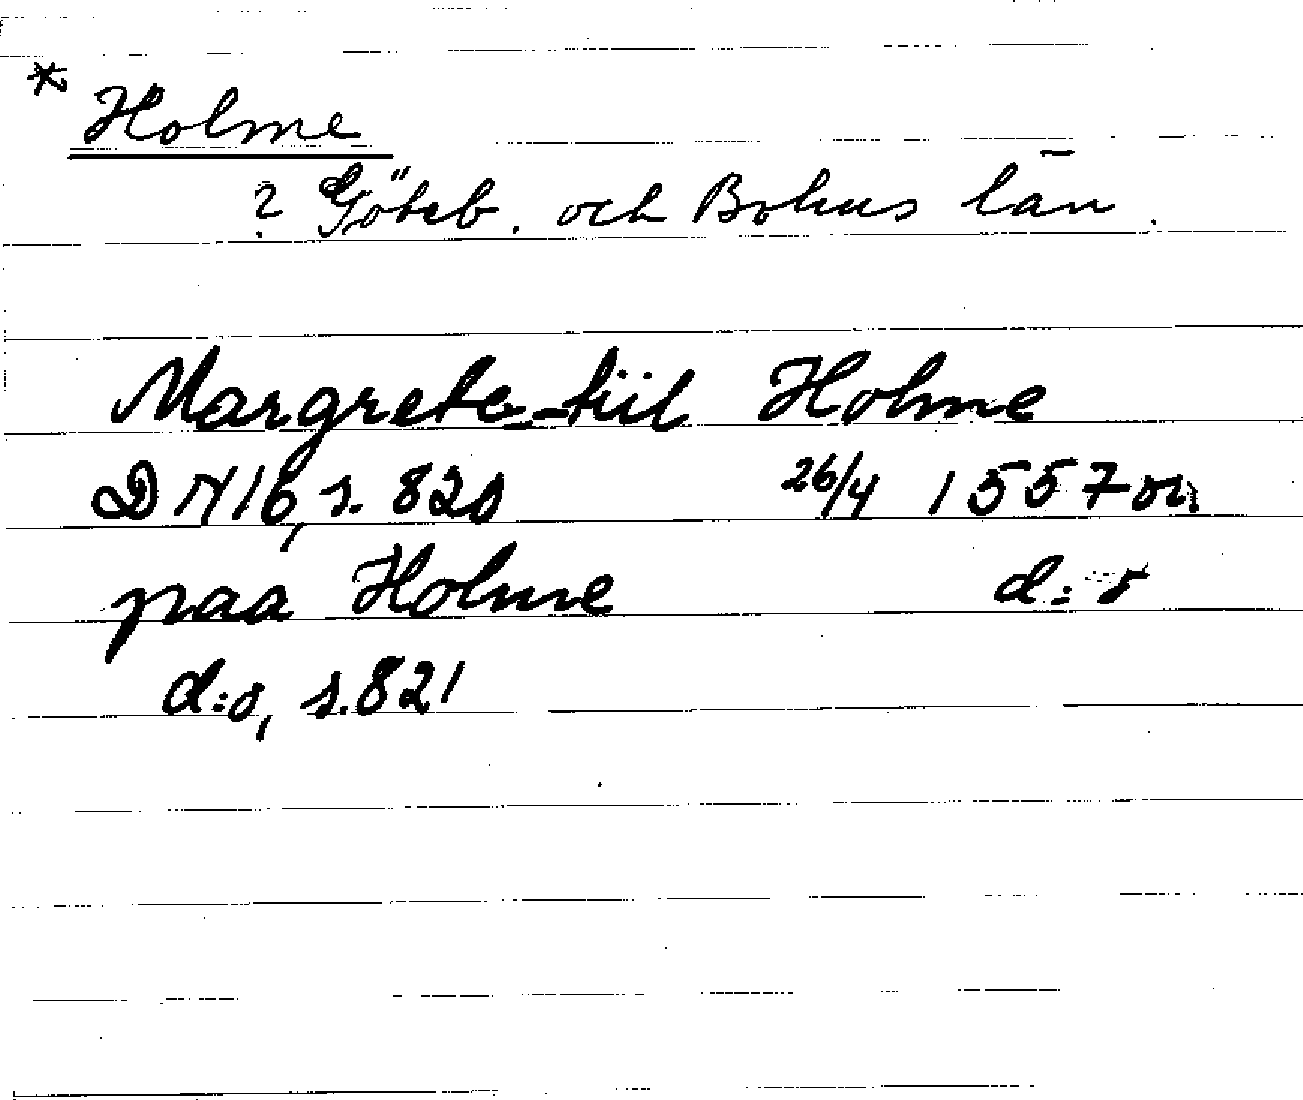 * Holme
? Göteb. och Bohus län.
Margrete tiil Holme
DN16, s. 820 26/4 1557 or.
paa Holme d:o
d:o, s. 821